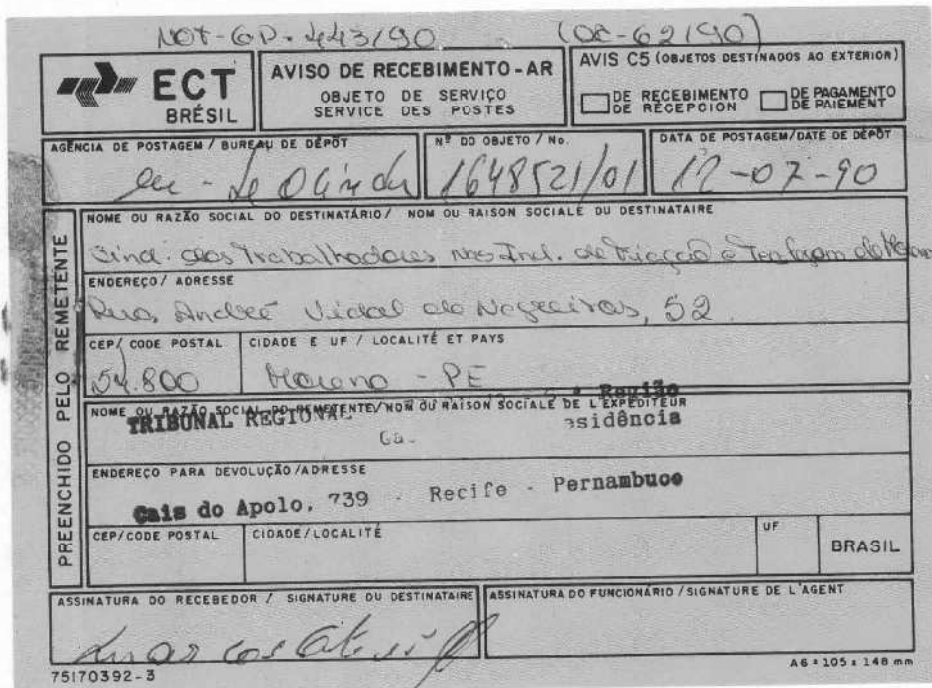 NOT-GP. 443/90 (DC-62/90)
ECT
BRÉSIL
AVISO DE RECEBIMENTO-AR
OBJETO DE SERVIÇO
SERVICE DES POSTES
AVIS C5 (OBJETOS DESTINADOS AO EXTERIOR)
DE RECEBIMENTO
DE RECEPCION
DE PAGAMENTO
DE PAIEMENT
AGÊNCIA DE POSTAGEM / BUREAU DE DÉPÔT
Nº DO OBJETO / No.
1648521/01
DATA DE POSTAGEM/DATE DE DÉPÔT
12-07-90
PREENCHIDO PELO REMETENTE
NOME OU RAZÃO SOCIAL DO DESTINATÁRIO / NOM OU RAISON SOCIALE DU DESTINATAIRE
Sind. dos Trabalhadores nas Ind. de Fiação e Tecelagem de
ENDEREÇO / ADRESSE
Rua, André Vidal de Negreiros, 52
CEP/ CODE POSTAL
54.800
CIDADE E UF / LOCALITÉ ET PAYS
Moreno - PE
NOME OU RAZÃO SOCIAL DO REMETENTE/NOM OU RAISON SOCIALE DE L'EXPÉDITEUR
TRIBUNAL REGIONAL Região
Ga. sidência
ENDEREÇO PARA DEVOLUÇÃO/ADRESSE
Cais do Apolo, 739 - Recife - Pernambuco
CEP/CODE POSTAL
CIDADE/LOCALITÉ
UF
BRASIL
ASSINATURA DO RECEBEDOR / SIGNATURE DU DESTINATAIRE
ASSINATURA DO FUNCIONÁRIO / SIGNATURE DE L'AGENT
75170392-3
A6 = 105 x 148 mm